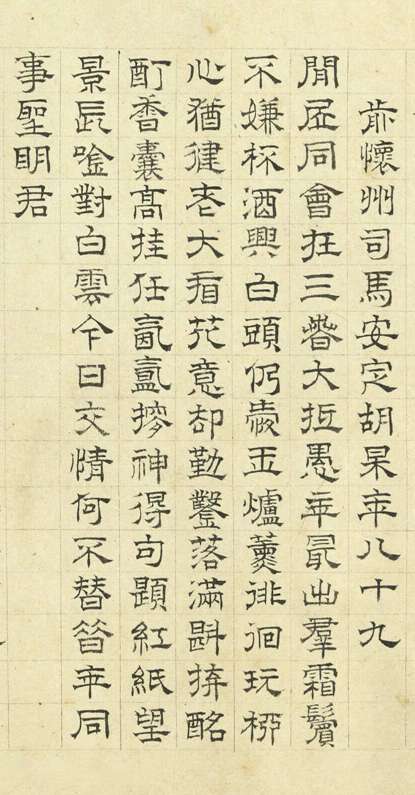 前懷州司馬安定胡杲年八十九
閒居同會在三春大抵愚年最出羣霜鬢
不嫌杯酒興白頭仍愛玉爐薰徘徊玩柳
心猶健老大看花意却勤鑿落滿斟拚酩
酊香囊高挂任氤氳搜神得句題紅紙望
景長吟對白雲今日交情何不替年同
事聖明君